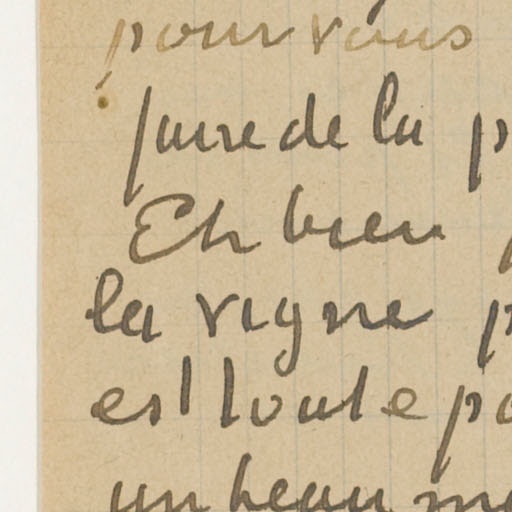 pour vous
faire de la p
Eh bien
la vigne p
est toute po
un beau mo